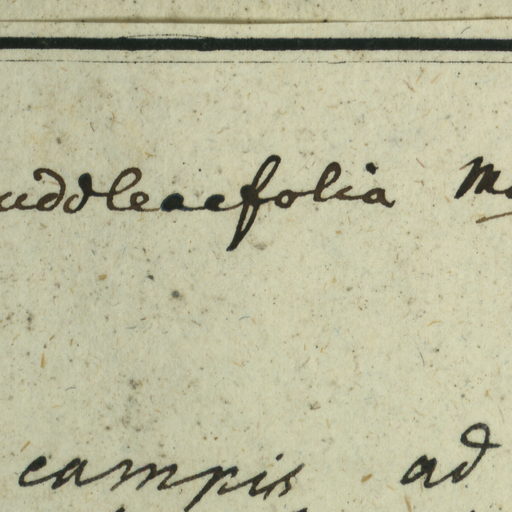 uddleaefolia
campis ad